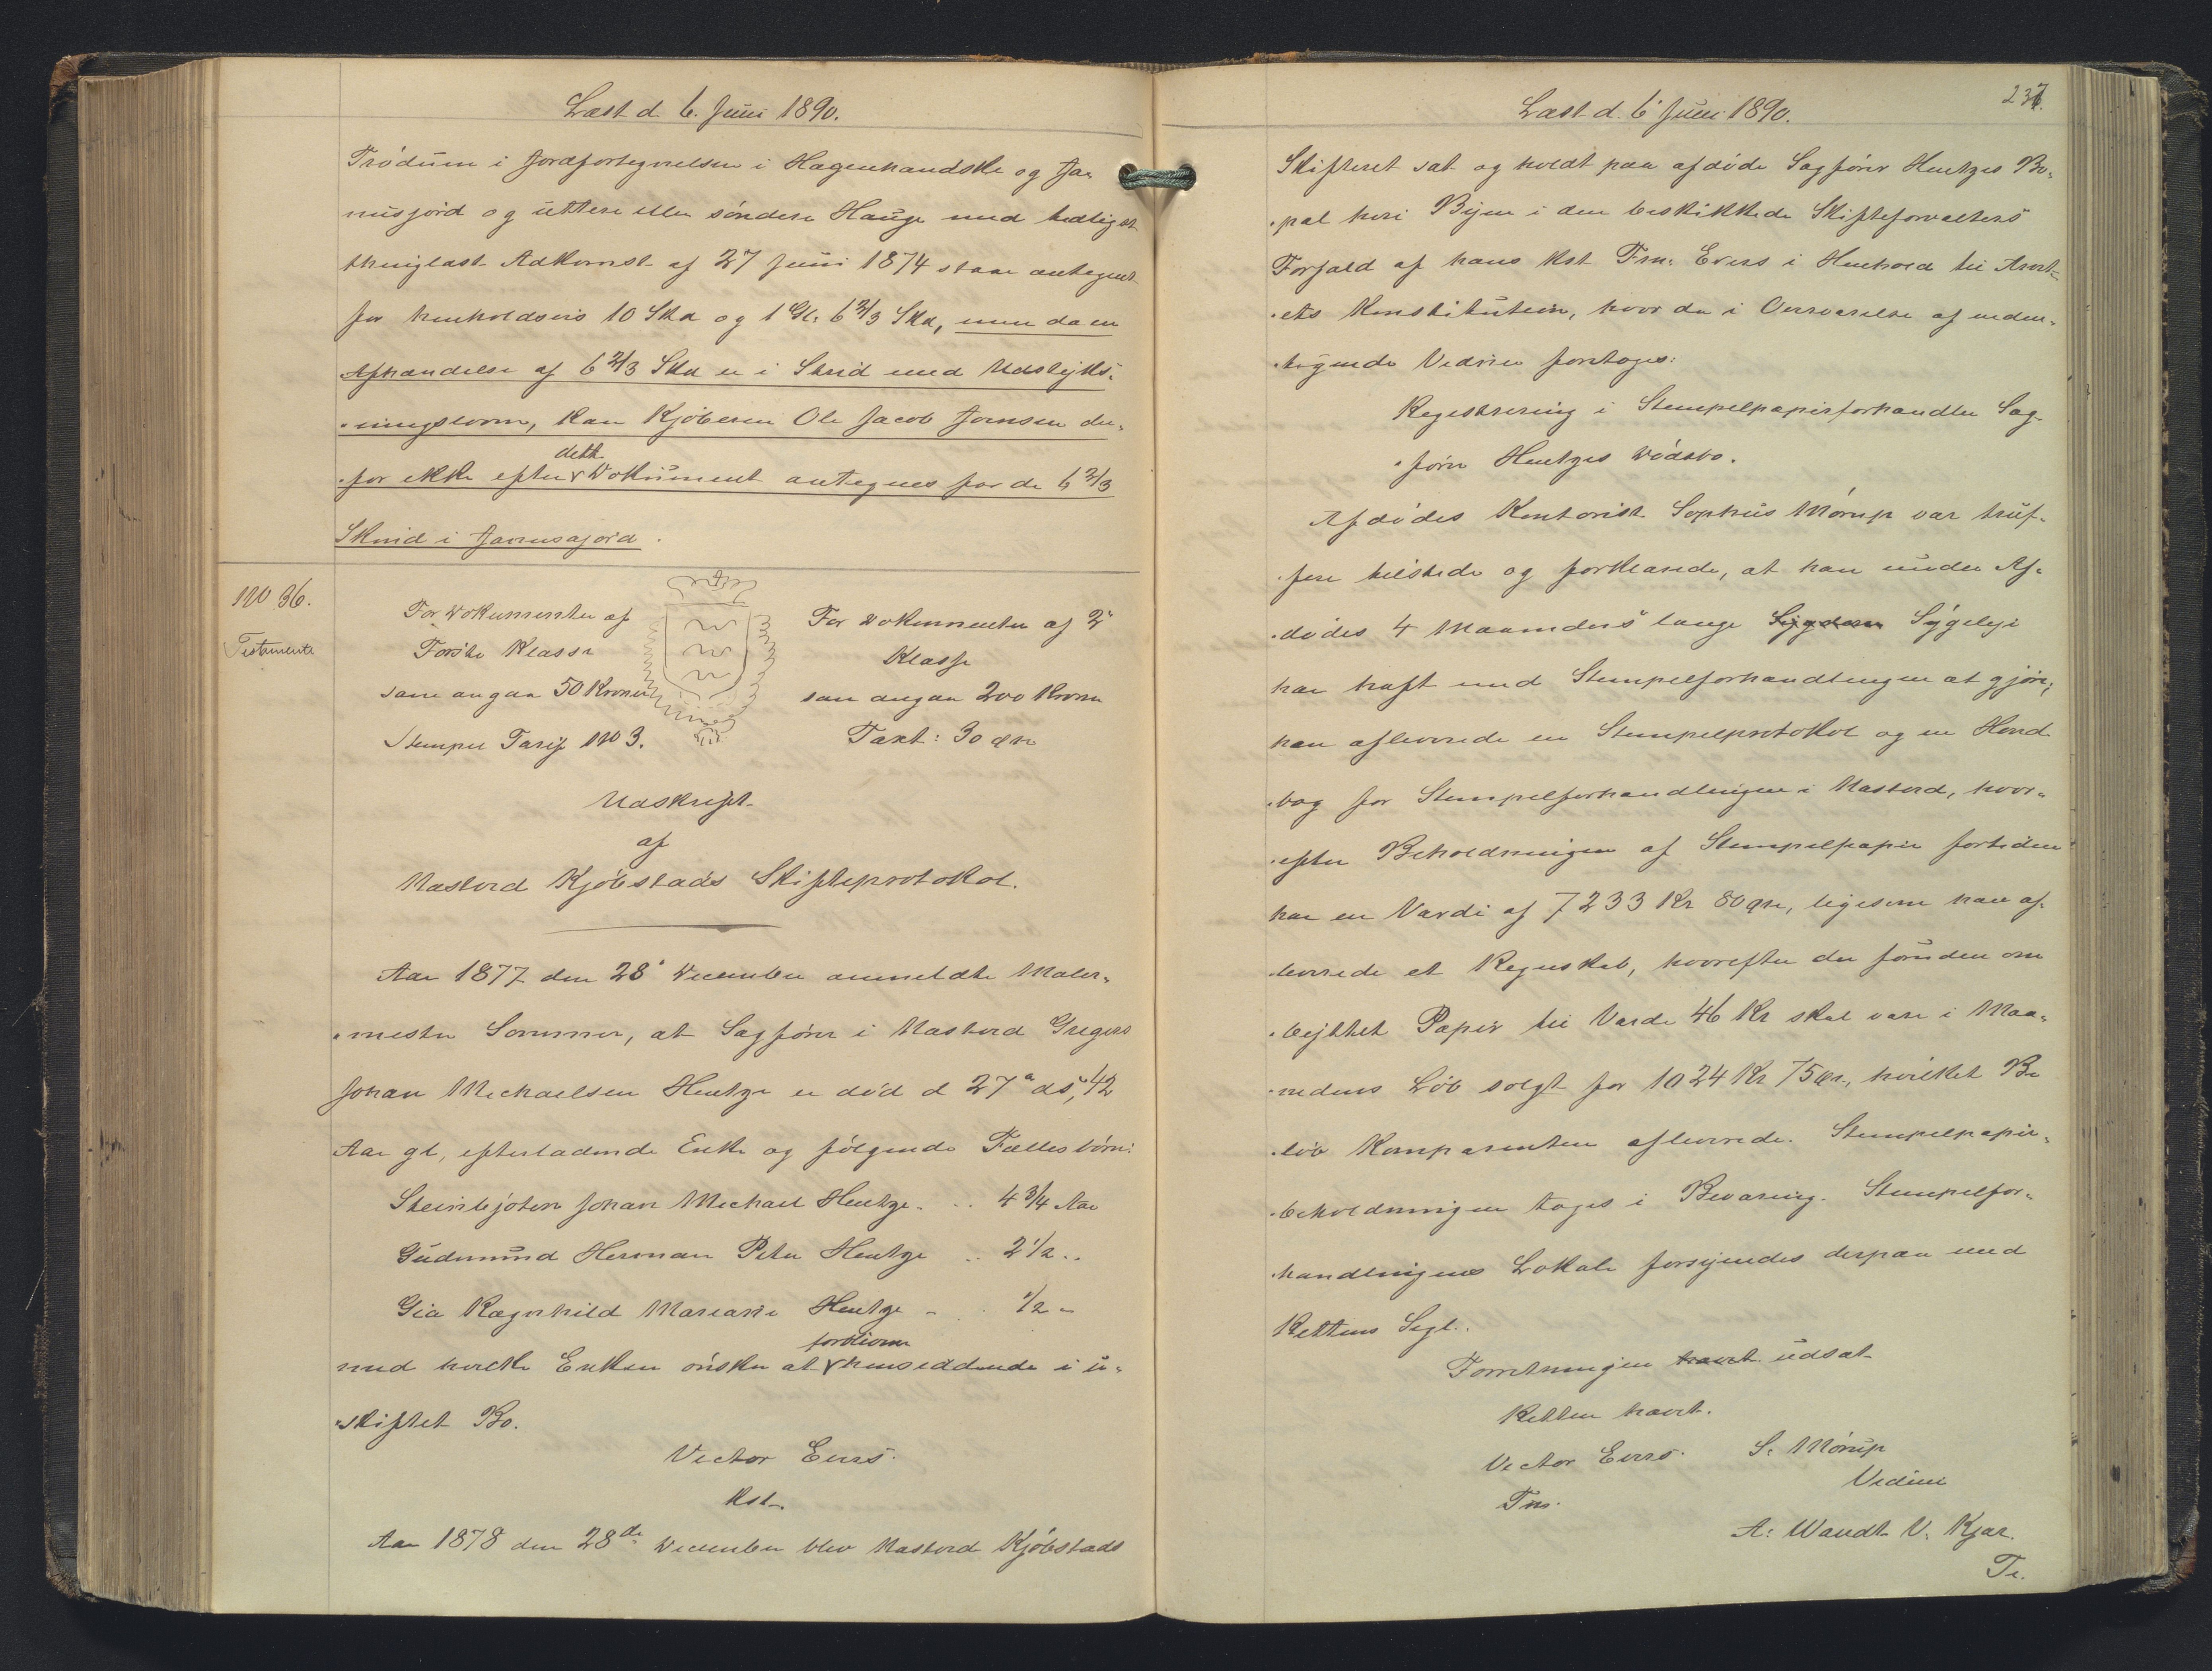 Læst d. 6. Juni 1890.
Trodum i Jordfortegnelsen i Hagenhandske og Ja-
nusjord og uttere eller søndere Hauge med tidligst
thinglæst Adkomst af 27 Juni 1874 staar antegnet
for henholdsvis 10 Skd og 1 Gl: 6 2/3 Skd, men da en
Afhændelse af 6 2/3 Skd er i Strid med Udstyks-
ningsloven, kan Kjøberen Ole Jacob Joensen der-
for ikke efter dette Dokument antegnes for de 6 2/3
Skind i Janusajord.
No 36.
Testamente
For Dokumenter af
Første Klasse
som angaa 50 Kroner
Stempel Tarif No 3.
For Dokumenter af 2'
Klasse
som angaa 200 Kroner
Taxt: 30 Øre
Udskrift
af
Næstved Kjøbstads Skifteprotokol.
Aar 1877 den 28' December anmeldte Maler-
mester Sommer, at Sagfører i Næstved Gregers
Johan Michaelsen Hentze er død d 27' ds, 42
Aar gl, efterladende Enke og følgende Fællesbørn:
Steinbjøten Johan Michael Hentze .. 4 3/4 Aar
Gudmund Herman Peter Hentze .. 2 1/2 ..
Gia Ragnhild Mariane Hentze - . 1/2 -
med hvilke Enken ønsker at forblive hensiddende i u-
skiftet Bo.
Victor Evers.
Kst.
Aar 1878 den 28de December blev Næstved Kjøbstads
237.
Læst d. 6' Juni 1890.
Skifteret sat og holdt paa afdøde Sagfører Hentzes Bo-
pæl her i Byen i den beskikkede Skifteforvalters
Forfald af hans Kst Fm: Evers i Henhold til Amt-
ets Konstitution, hvor da i Overværelse af under-
tegnede Vidner foretoges:
Registrering i Stempelpapirforhandler Sag-
fører Hentzes Dødsbo.
Afdødes Kontorist Sophus Mørup var truf-
fen tilstede og forklarede, at han under Af-
dødes 4 Maaneders lange Sygdom Sygeleje
har haft med Stempelforhandlingen at gjøre;
han afleverede en Stempelprotokol og en Haand-
bog for Stempelforhandlingen i Næstved, hvor-
efter Beholdningen af Stempelpapir fortiden
har en Værdi af 7233 Kr 80 Øre, ligesom han af-
leverede et Regnskab, hvorefter der foruden om
byttet Papir til Værdi 46 Kr skal være i Maa-
nedens Løb solgt for 1024 Kr 75 Ør., hvilket Be
løb Komparenten afleverede. Stempelpapir-
beholdningen toges i Bevaring. Stempelfor-
handlingens Lokale forsynedes derpaa med
Rettens Segl.
Forretningen hævet udsat
Retten hævet.
Victor Evers.
Fm.
S. Mørup
Vidner
A: Wandt V. Kjær.
Te.